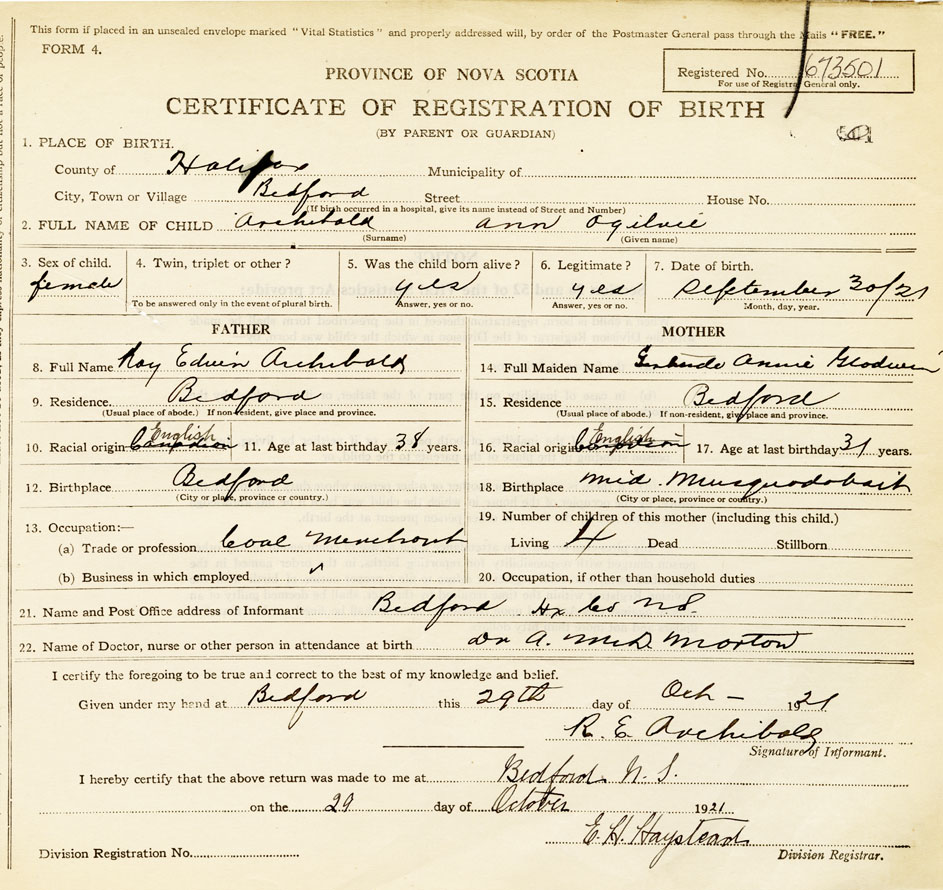 This form if placed in an unsealed envelope marked "Vital Statistics" and properly addressed will, by order of the Postmaster General pass through the Mails "FREE."
FORM 4.
PROVINCE OF NOVA SCOTIA
Registered No. 673501
For use of Registrar General only.
CERTIFICATE OF REGISTRATION OF BIRTH
(BY PARENT OR GUARDIAN)
1. PLACE OF BIRTH.
County of Halifax Municipality of
City, Town or Village Bedford Street House No.
(If birth occurred in a hospital, give its name instead of Street and Number)
2. FULL NAME OF CHILD Archibald Ann Ogilvie
(Surname) (Given name)
3. Sex of child. 4. Twin, triplet or other? 5. Was the child born alive? 6. Legitimate? 7. Date of birth.
female yes yes September 30/21
To be answered only in the event of plural birth. Answer, yes or no. Answer, yes or no. Month, day, year.
FATHER MOTHER
8. Full Name Roy Edwin Archibald
9. Residence. Bedford
(Usual place of abode.) If non-resident, give place and province.
10. Racial origin English 11. Age at last birthday 38 years.
12. Birthplace Bedford
(City or place, province or country.)
13. Occupation:—
(a) Trade or profession Coal Merchant
(b) Business in which employed
14. Full Maiden Name Gertrude Annie
15. Residence Bedford
(Usual place of abode.) If non-resident, give place and province.
16. Racial origin English 17. Age at last birthday 31 years.
18. Birthplace Mid. Musquodoboit
(City or place, province or country.)
19. Number of children of this mother (including this child.)
Living 4 Dead Stillborn
20. Occupation, if other than household duties
21. Name and Post Office address of Informant Bedford Hx Co N.S.
22. Name of Doctor, nurse or other person in attendance at birth Dr A. McD. Morton
I certify the foregoing to be true and correct to the best of my knowledge and belief.
Given under my hand at Bedford this 29th day of Oct – 1921
R. E. Archibald
Signature of Informant.
I hereby certify that the above return was made to me at Bedford N. S.
on the 29 day of October 1921
E. H. Haystead
Division Registration No. Division Registrar.